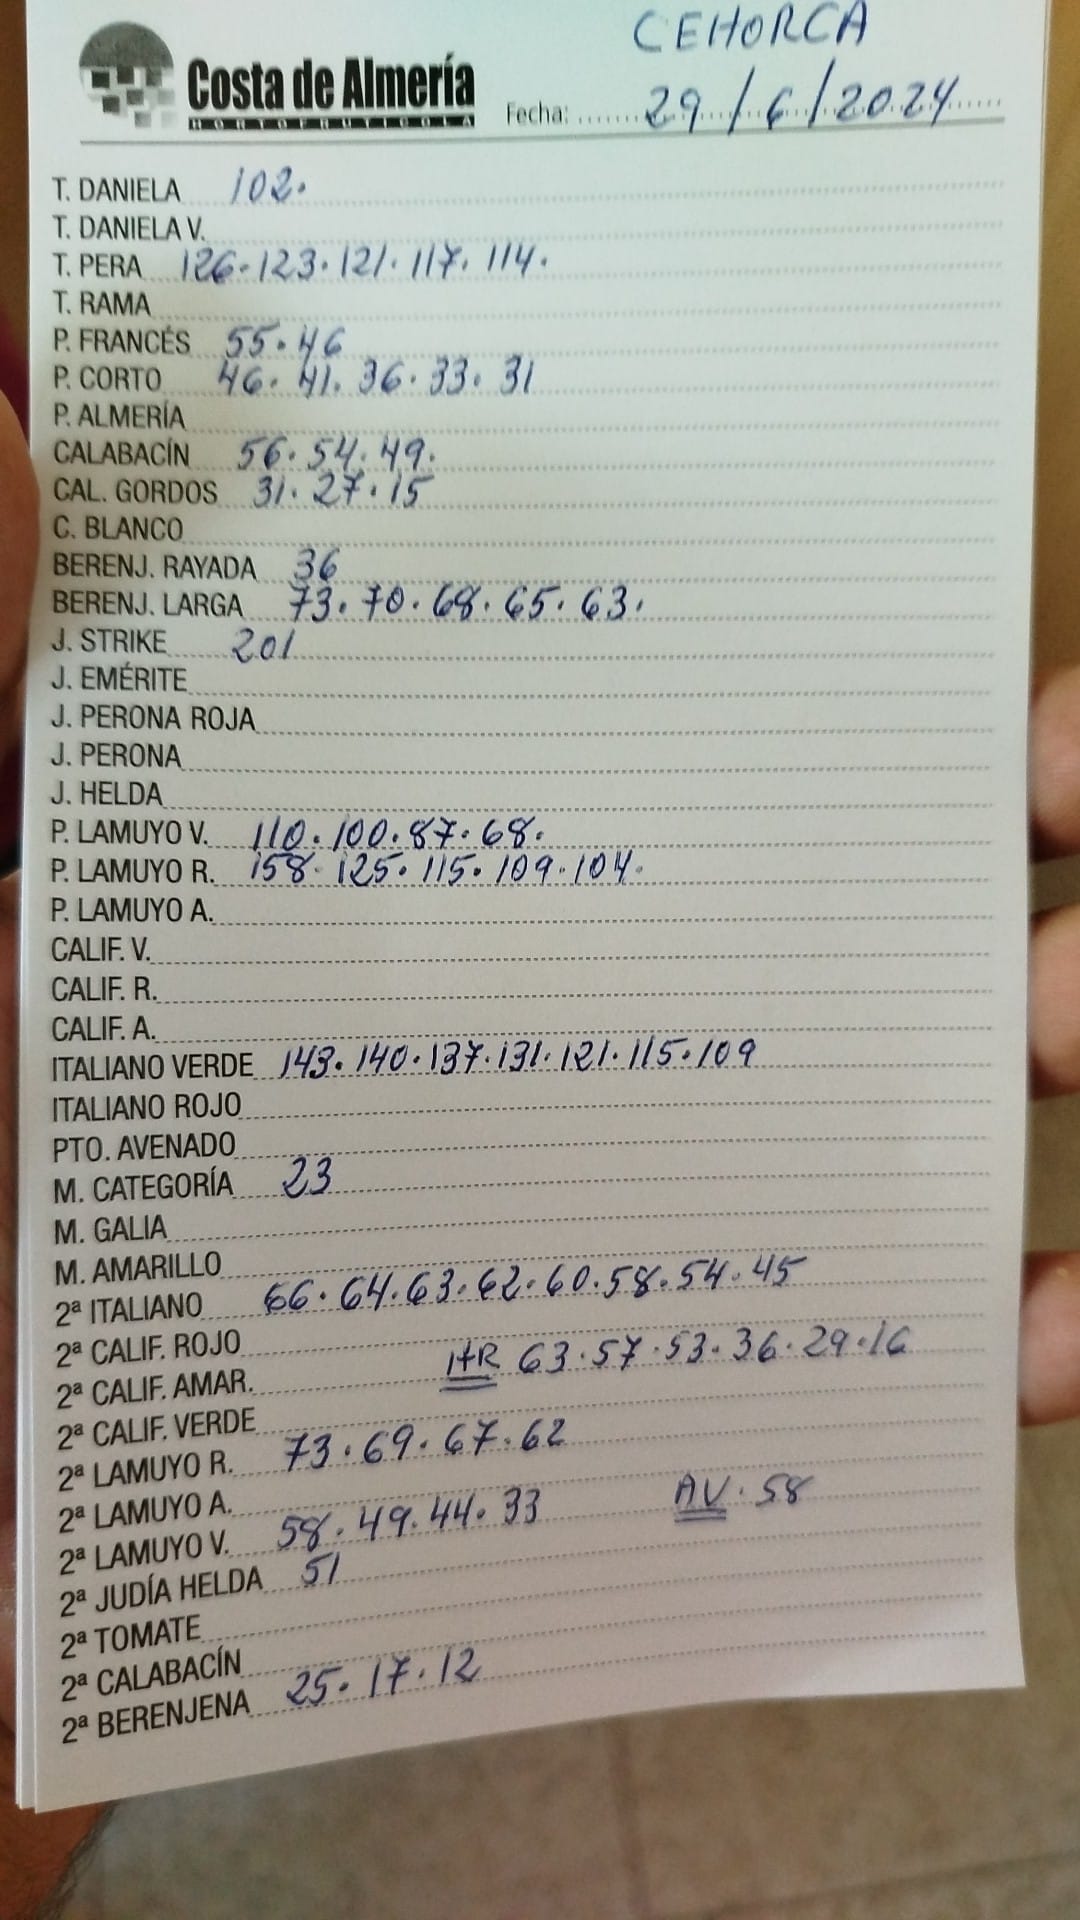 CEHORCA
Costa de Almería
HORTOFRUTICOLA
Fecha: 29/6/2024
T. DANIELA 102.
T. DANIELA V.
T. PERA 126.123.121.117.114.
T. RAMA
P. FRANCÉS 55.46
P. CORTO 46.41.36.33.31
P. ALMERÍA
CALABACÍN 56.54.49.
CAL. GORDOS 31.27.15
C. BLANCO
BERENJ. RAYADA 36
BERENJ. LARGA 73.70.68.65.63.
J. STRIKE 201
J. EMÉRITE
J. PERONA ROJA
J. PERONA
J. HELDA
P. LAMUYO V. 110.100.87.68.
P. LAMUYO R. 158.125.115.109.104.
P. LAMUYO A.
CALIF. V.
CALIF. R.
CALIF. A.
ITALIANO VERDE 143.140.137.131.121.115.109
ITALIANO ROJO
PTO. AVENADO
M. CATEGORÍA 23
M. GALIA
M. AMARILLO
2ª ITALIANO 66.64.63.62.60.58.54.45
2ª CALIF. ROJO
2ª CALIF. AMAR. ItR 63.57.53.36.29.16
2ª CALIF. VERDE
2ª LAMUYO R. 73.69.67.62
2ª LAMUYO A.
2ª LAMUYO V. 58.49.44.33 AV.58
2ª JUDÍA HELDA 51
2ª TOMATE
2ª CALABACÍN
2ª BERENJENA 25.17.12